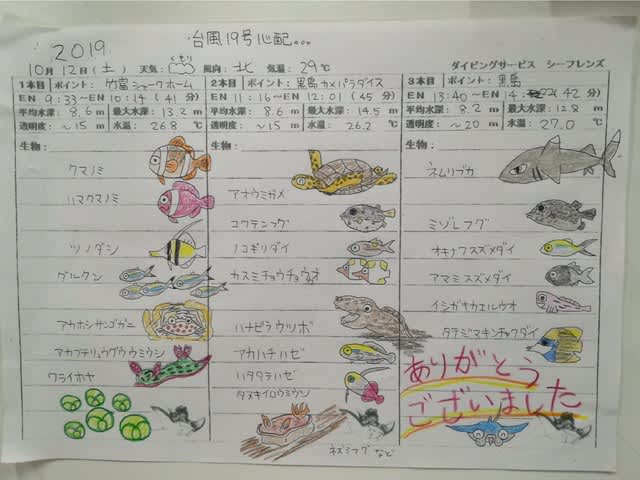 台風19号心配...
2019
10月12日(土) 天気: くもり 風向: 北 気温: 29℃ ダイビングサービス シーフレンズ
1本目 ポイント: 竹富シャークホーム
EN 9:33~EN 10:14 (41分)
平均水深: 8.6 m 最大水深: 13.2 m
透明度: ~15 m 水温: 26.8 ℃
生物:
クマノミ
ハマクマノミ
ツノダシ
グルクン
アカホシサンゴガニ
アカフチリュウグウウミウシ
ワライホヤ
2本目 ポイント: 黒島カメパラダイス
EN 11:16~EN 12:01 (45分)
平均水深: 8.6 m 最大水深: 14.5 m
透明度: ~15 m 水温: 26.2 ℃
生物:
アオウミガメ
コクテンフグ
ノコギリダイ
カスミチョウチョウオ
ハナビラウツボ
アカハチハゼ
ハタタテハゼ
タヌキイロウミウシ
ネズミフグ など
3本目 ポイント: 黒島
EN 13:40~EN 14:22 (42分)
平均水深: 8.2 m 最大水深: 12.8 m
透明度: ~20 m 水温: 27.0 ℃
生物:
ネムリブカ
ミゾレフグ
オキナワスズメダイ
アマミスズメダイ
イシガキカエルウオ
タテジマキンチャクダイ
ありがとう
ございました